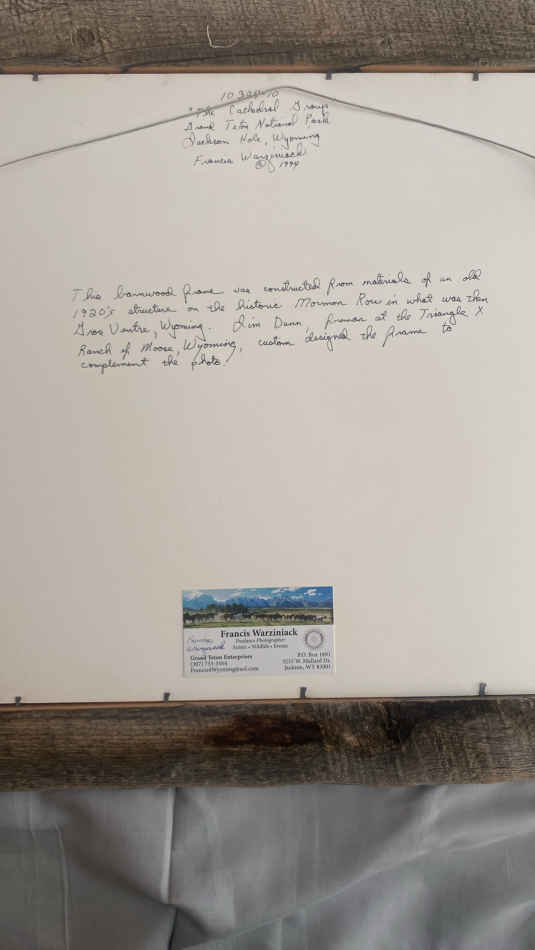 "The Cathedral Group
Grand Teton National Park
Jackson Hole, Wyoming
Francis Warziniack
© 1994
This barnwood frame was constructed from materials of an old
1920's structure on the historic Mormon Row in what was then
Gros Ventre, Wyoming. Jim Dunn, foreman at the Triangle X
Ranch of Moose, Wyoming, custom designed the frame to
complement the photo.
Francis Warziniack
Freelance Photographer
Scenic • Wildlife • Events
Grand Teton Enterprises
P.O. Box
Jackson, WY 83001